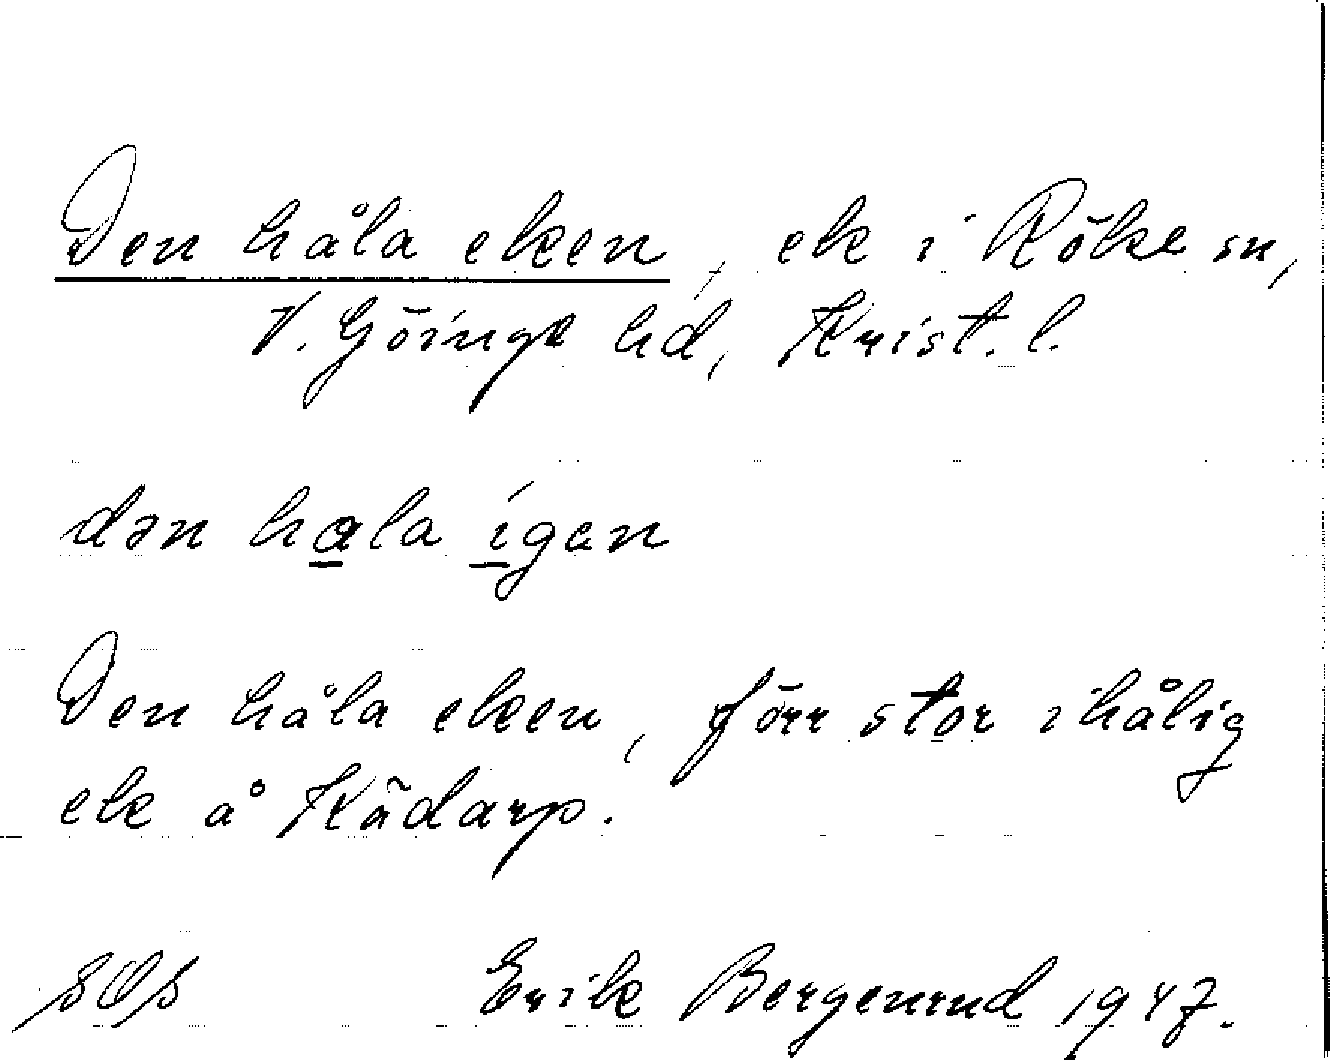 Den håla eken, ek i Röke sn,
V. Göinge hd, Krist. l.
dən hala ígan
Den håla eken, förr stor ihålig
ek å Kädarp.
SOS Erik Bergenrud 1947.